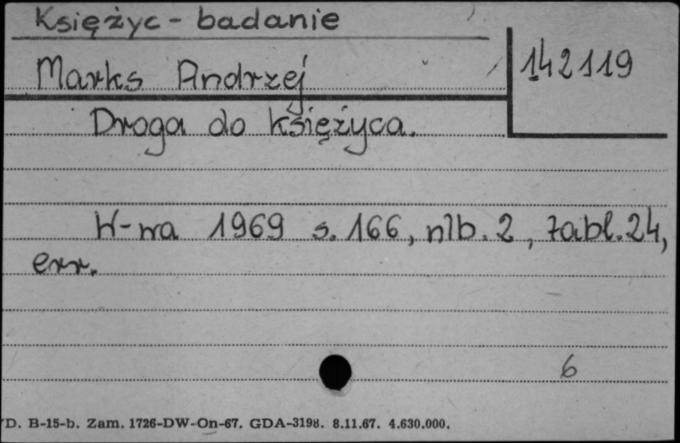 Księżyc - badanie
142119
Marks Andrzej
Droga do Księżyca.
W-wa 1969 s. 166, nlb. 2, tabl. 24,
err.
6
D. B-15-b. Zam. 1726-DW-On-67. GDA-3198. 8.11.67. 4.630.000.